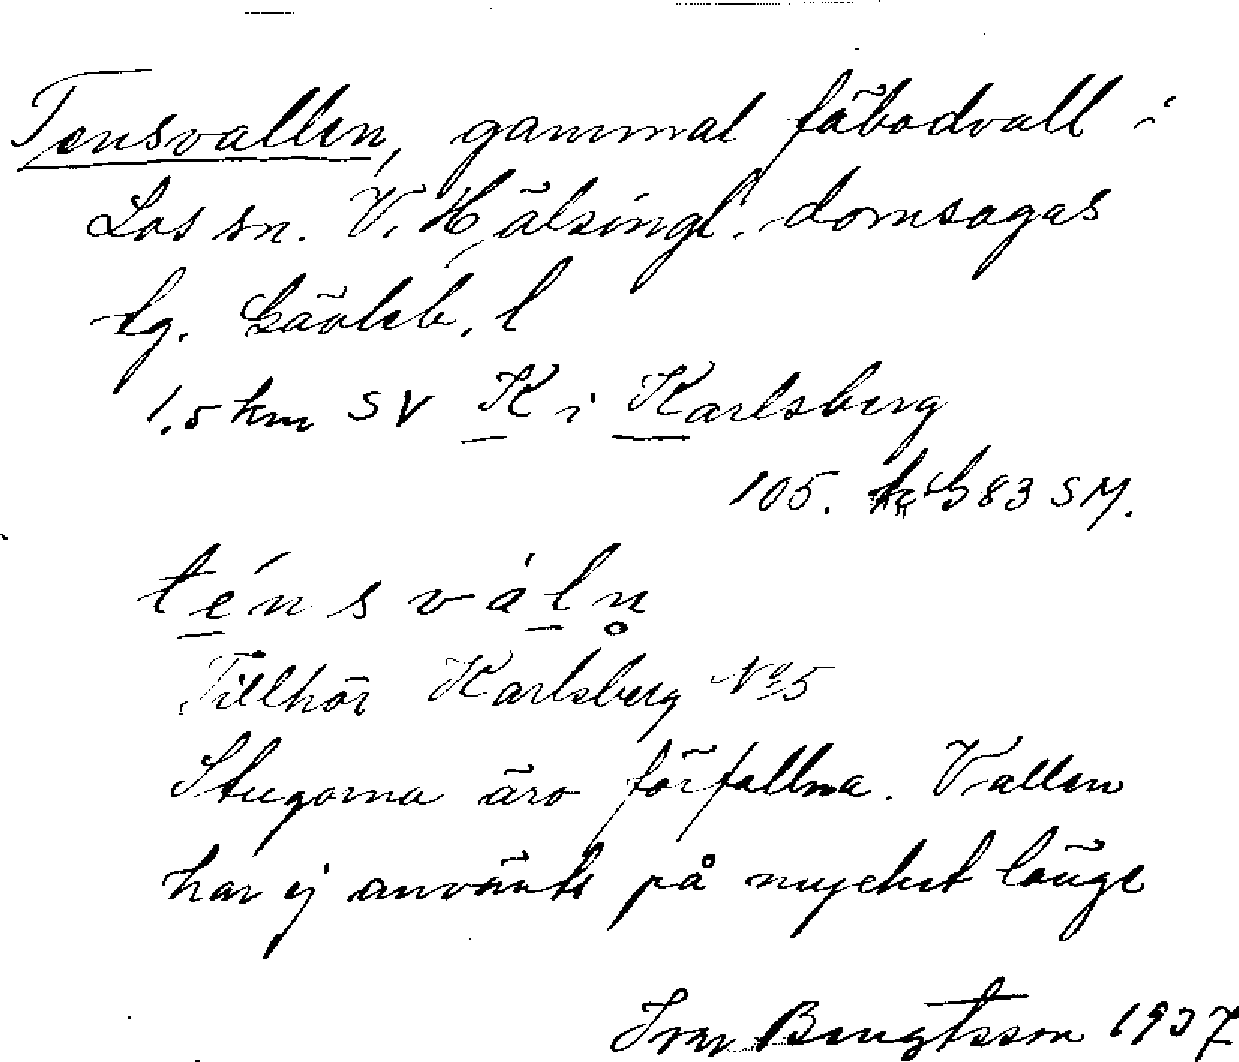 Tensvallen, gammal fäbodvall i
Los sn. V. Hälsingl. domsagas
tg. Gävleb. l
1,5 km SV K i Karlsberg
105. G83 SM.
ténsváln̥
Tillhör Karlsberg No 5
Stugorna äro förfallna. Vallen
har ej använts på mycket länge
Ivar Bengtsson 1937